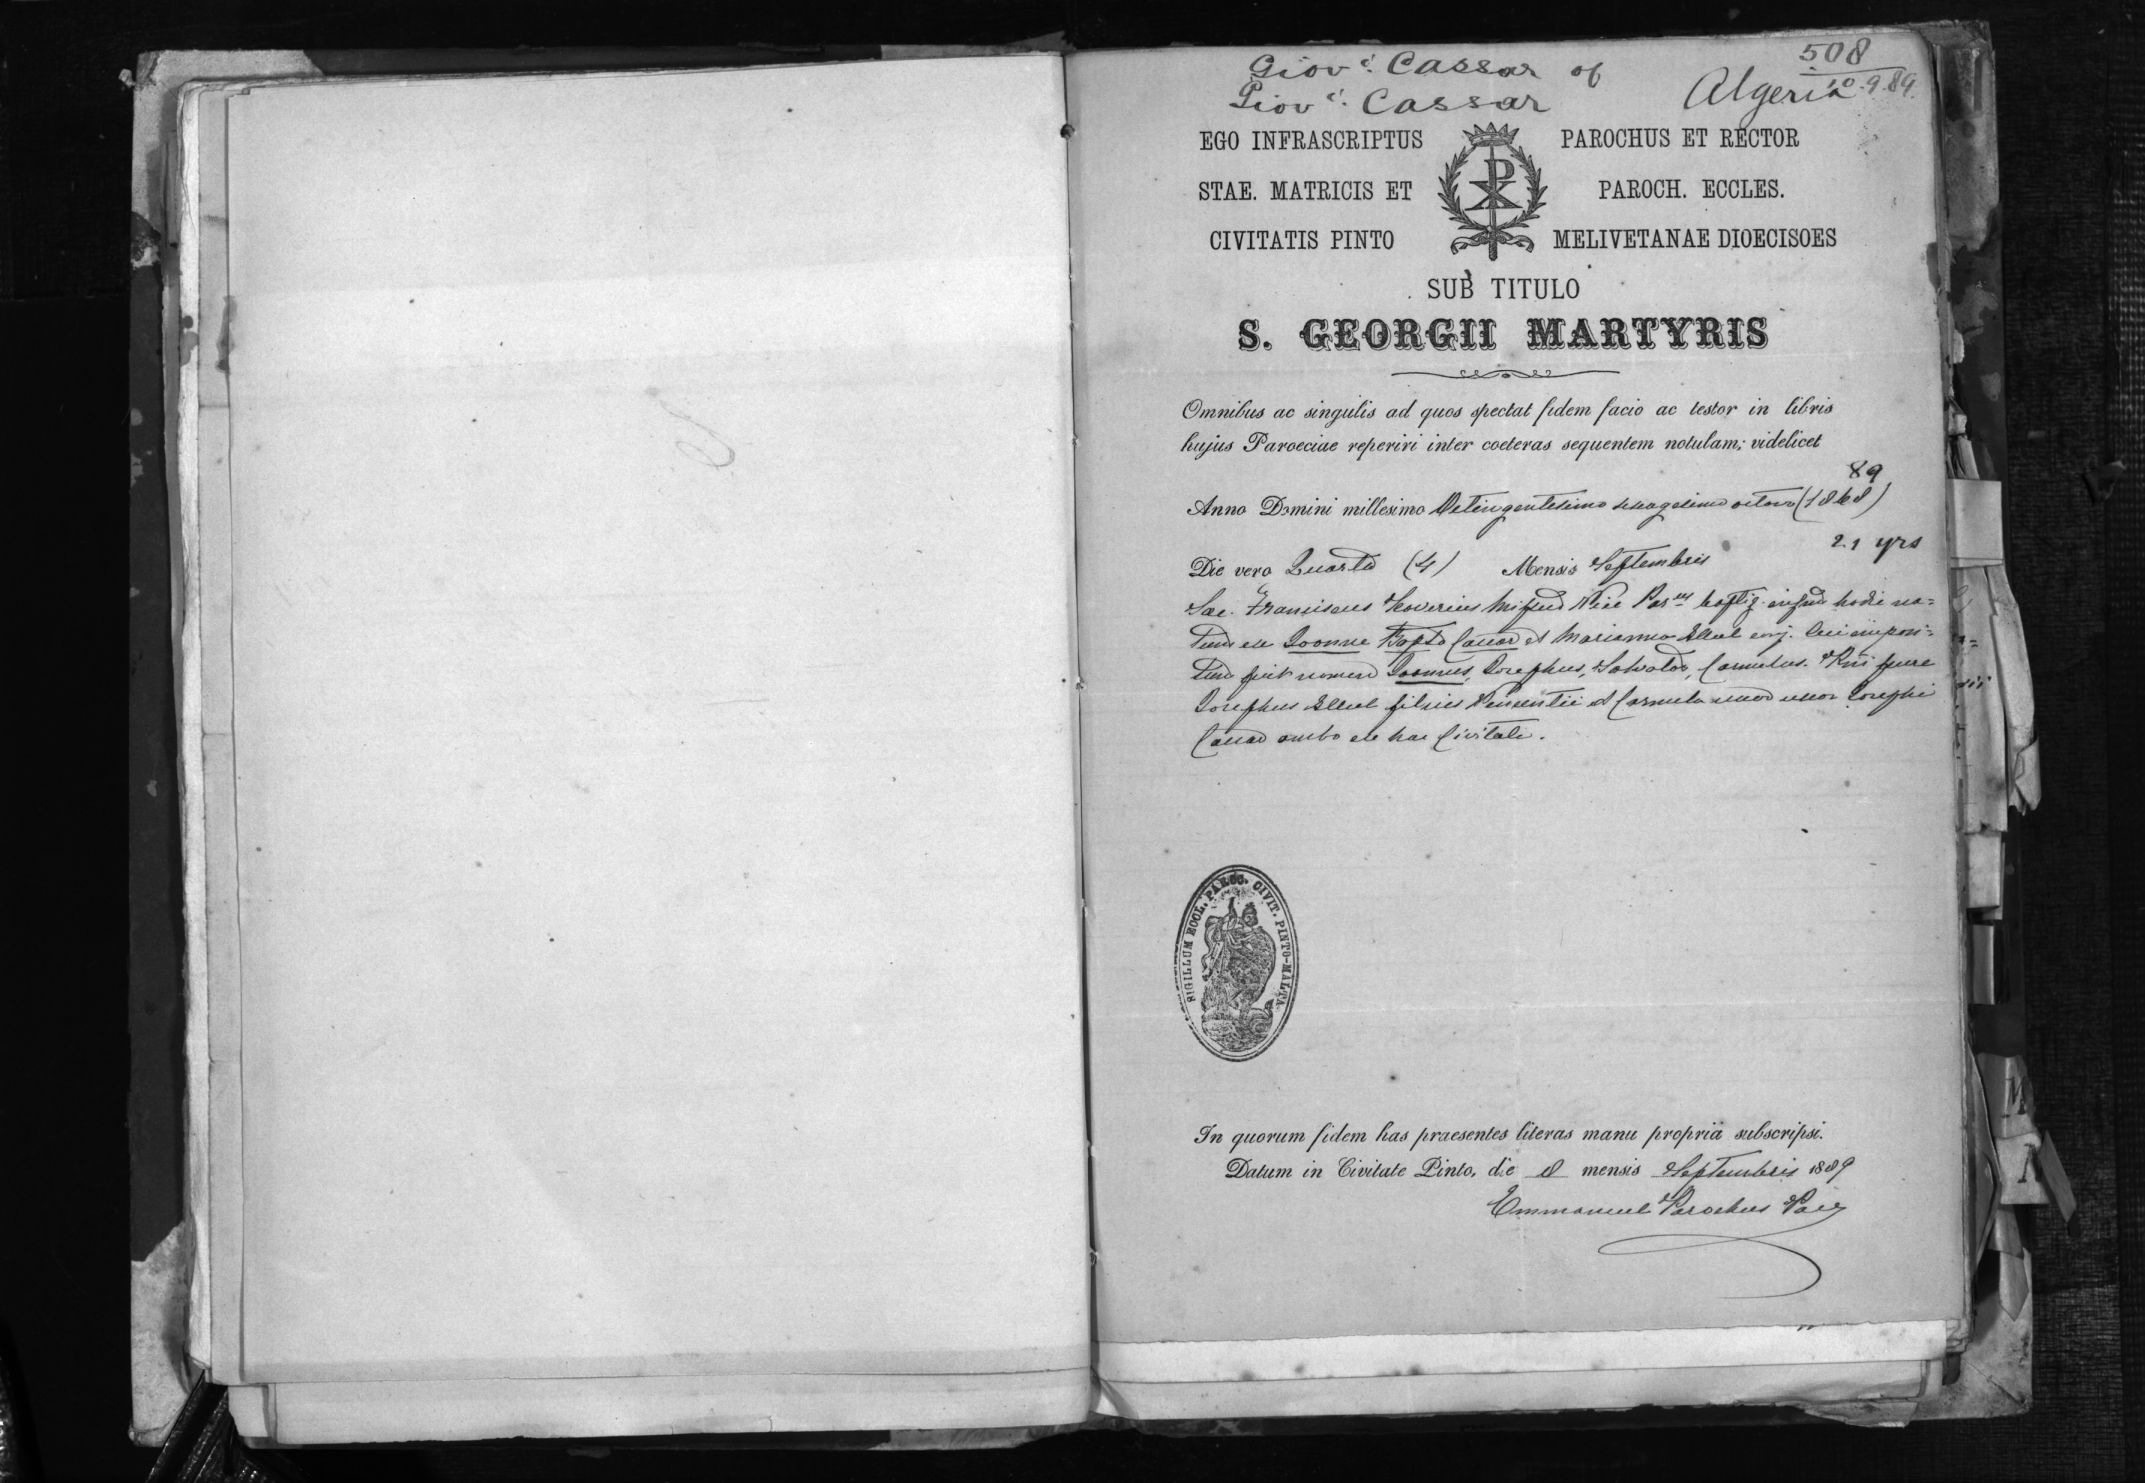 508
Giov: Cassar of
Algeria 10.9.89.
Giov: Cassar
EGO INFRASCRIPTUS PAROCHUS ET RECTOR
STAE. MATRICIS ET PAROCH. ECCLES.
CIVITATIS PINTO MELIVETANAE DIOECISOES
SUB TITULO
S. GEORGII MARTYRIS
Omnibus ac singulis ad quos spectat fidem facio ac testor in libris
hujus Paroeciae reperiri inter coeteras sequentem notulam; videlicet
89
Anno Domini millesimo Octingentesimo sexagesimo octavo (1868)
21 yrs
Die vero Quarta (4) Mensis Septembris
Sac. Franciscus Xaverius Mifsud Vice Par.us baptiz. hodie na=
tum ex Joanne Bapta Cassar et Marianna Ellul conj. Cui imposi=
tum fuit nomen Joannes, Josephus, Salvator, Carmelus. fuere
Josephus Ellul filius Vincentii et Carmela uxor Josephi
Cassar ambo ex hac Civitate.
SIGILLUM ECCL. PAROC. CIVIT. PINTO-MALTA
In quorum fidem has praesentes literas manu propria subscripsi.
Datum in Civitate Pinto, die 8 mensis Septembris 1889
Emmanuel Parochus